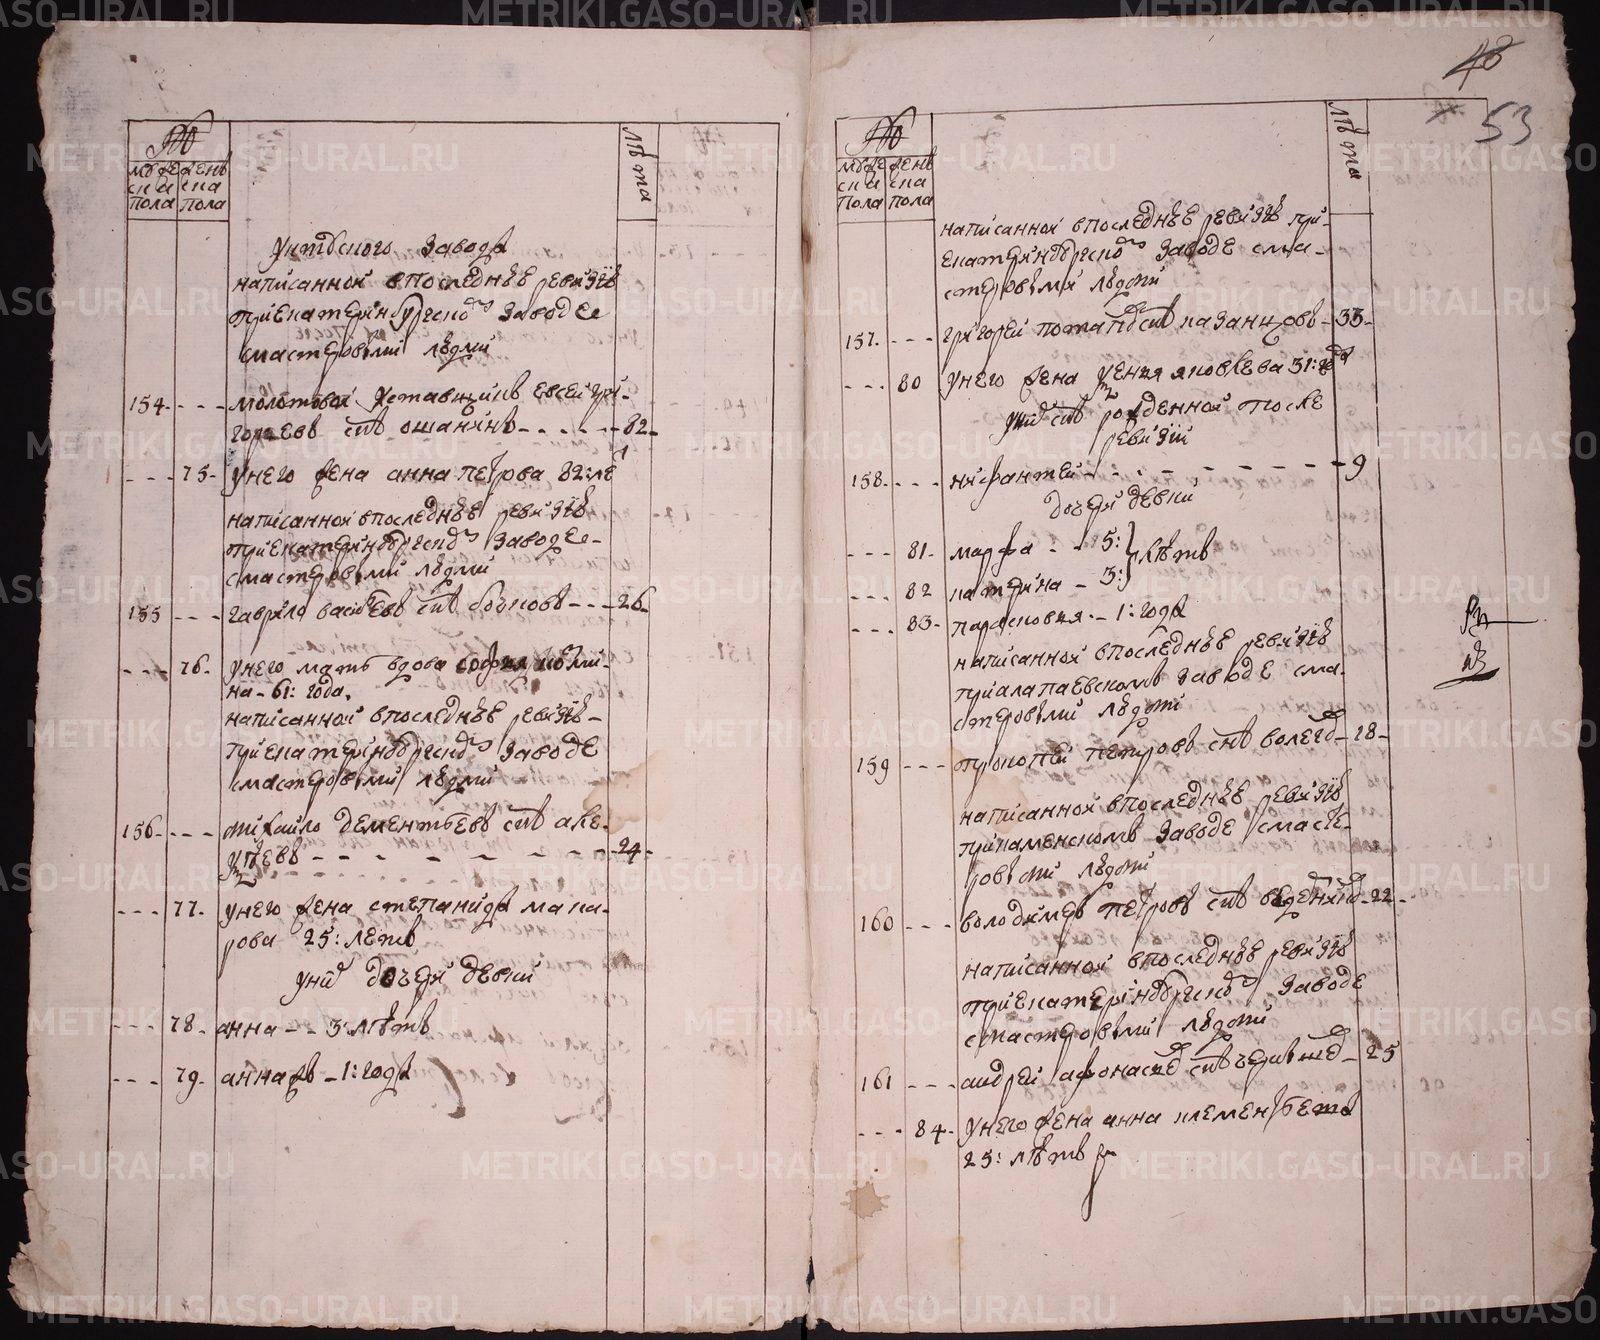 №
мужеска пола
женска пола
лѣта
Уктуского завода
написанной в последнѣе ревизѣе
при екатеринбургском заводе
с мастеровыми людми
154 - - - молотовой уставщикъ евсей гри-
горьевъ снъ ошанинъ - - - - - 82 -
- - - 75 - у него жена анна петрова 82: ле
написанной в последнѣе ревизѣе
при екатеринбургском заводе -
с мастеровыми людми
155 - - - гаврило васильевъ снъ бочковъ - - - 26
- - - 76 - у него мать вдова софия козми-
на - 61: года.
написанной в последнѣе ревизѣе -
при екатеринбургском заводе
с мастеровыми людми
156 - - - михайло дементьевъ снъ
- - - - - - - - 24 -
- - - 77 - у него жена степанида мака-
рова 25: летъ
у них дочери девки
- - - 78 - анна - - 3: лѣтъ
- - - 79 - анна жъ - 1: года
48
53
№
мужеска пола
женска пола
лѣта
написанной в последнѣе ревизѣе при
екатеринбургском заводе с ма-
стеровыми людми
157 - - - григорей потаповъ снъ казанцовъ - 33 -
- - - 80 у него жена ксения яковлева 31: года
у них снъ рожденной после
ревизии
158 - - - нифантей - - - - - - - - - 9
дочери девки
- - - 81 - марфа - - 5:
- - - 82 катерина - 3: } лѣтъ
- - - 83 - парасковия - 1: года
написанной в последнѣе ревизѣе
при алапаевскомъ заводе с ма-
стеровыми людми
159 - - - прокопей петровъ снъ - 18 -
написанной в последнѣе ревизѣе
при каменскомъ заводе с масте-
ровыми людми
160 - - - володимеръ петровъ снъ - 22 -
написанной в последнѣе ревизѣе
при екатеринбургском заводе
с мастеровыми людми
161 - - - андрей афонасьев снъ - 25
- - - 84 - у него жена анна клементьева
25: лѣтъ
METRIKI.GASO-URAL.RU